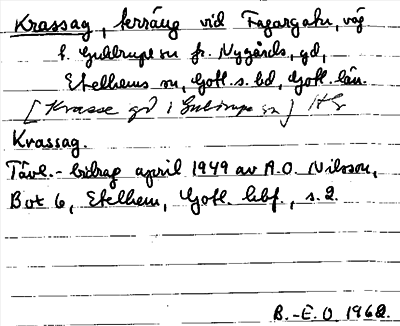 Krassag, terräng vid Fagargatu, väg
t. Guldrupe sn fr. Nygårds, gd,
Etelhems sn, Gotl. s. hd, Gotl. län.
[Krasse gd i Guldrupe sn] HG
Krassag.
Tävl.-bidrag april 1949 av A.O. Nilsson,
Bot 6, Etelhem, Gotl. hbf., s. 2.
B.-E. O. 1962.